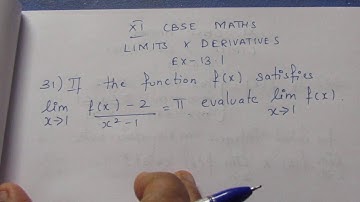 XI CBSE MATHS
LIMITS & DERIVATIVES
EX-13.1
31) If the function f(x) satisfies
lim x→1 f(x)-2 / x²-1 = π evaluate lim x→1 f(x).